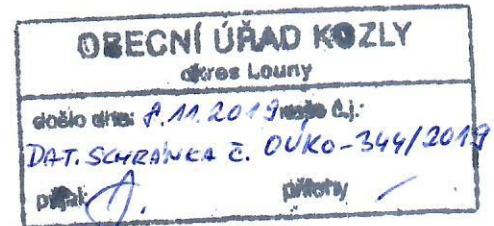 OBECNÍ ÚŘAD KOZLY
okres Louny
došlo dne: 8.11.2019 naše č.j.:
DAT. SCHRÁNKA Č. OÚKO-344/2019
přijal: přílohy